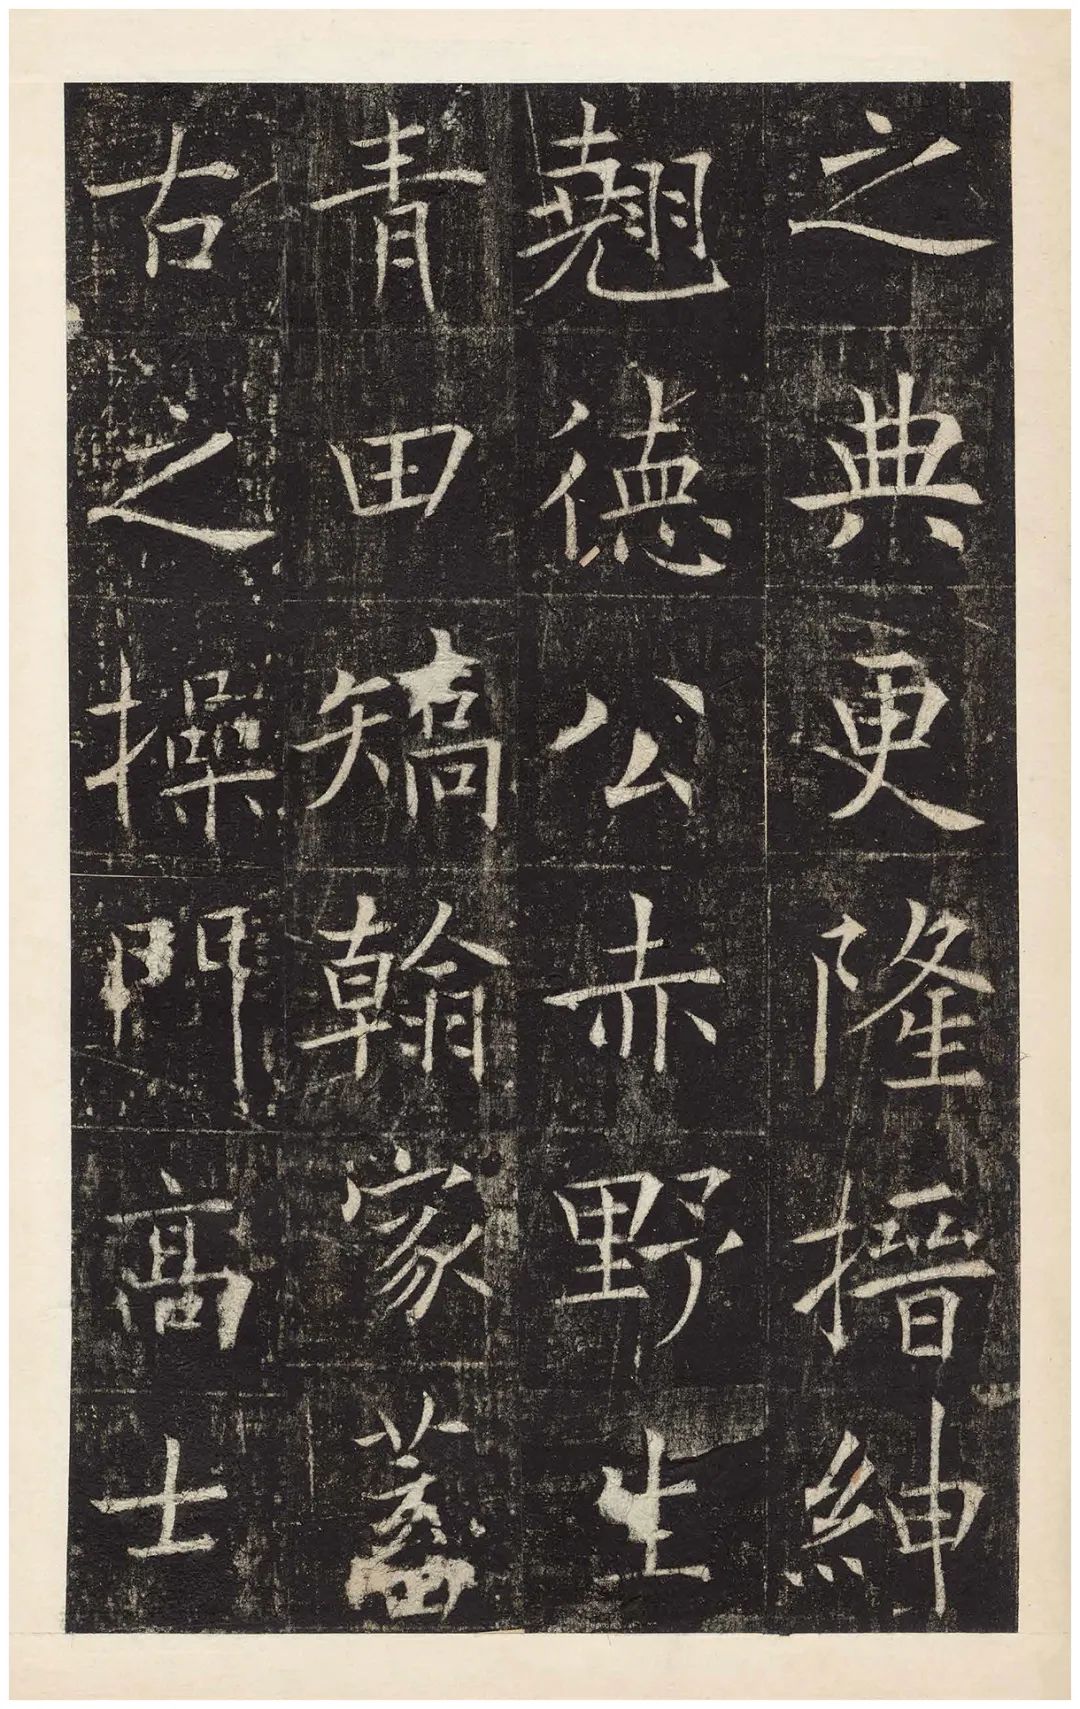 之典更隆搢紳
翹德公赤野生
青田矯翰家蓄
古之操門高士